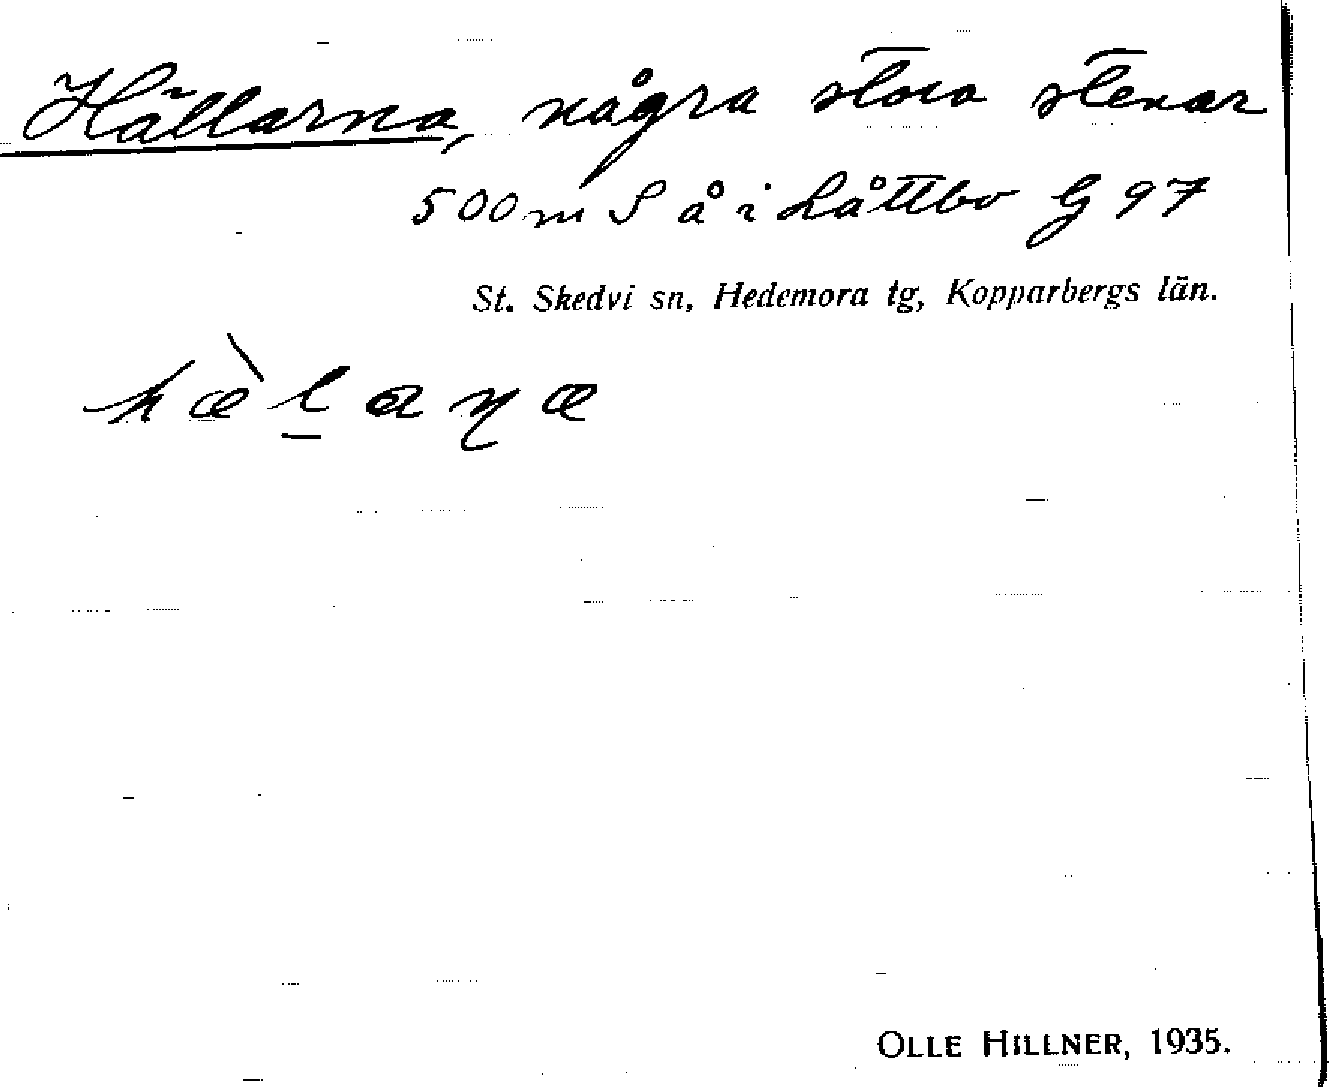 Hällarna, några stora stenar
500 m S å i Låttbo G 97
St. Skedvi sn, Hedemora tg, Kopparbergs län.
hæ̀l̠aṇæ
OLLE HILLNER, 1935.